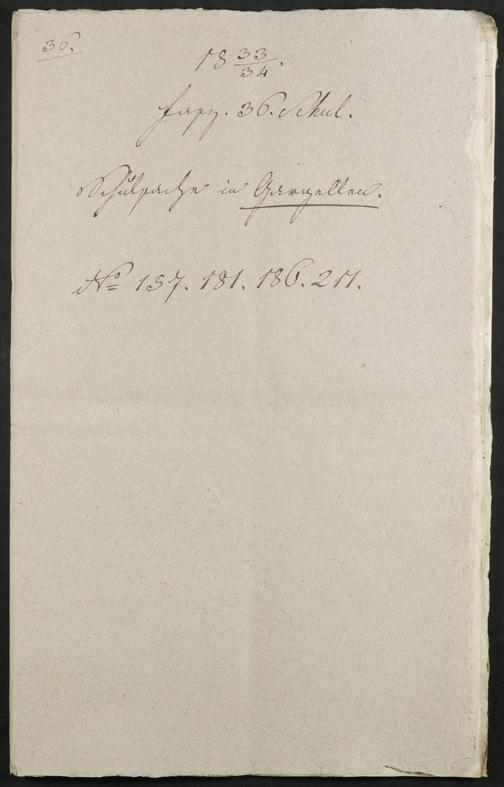 36.
18 33/34.
Fasz. 36. Schul.
Schulsache in Gargellen.
No 157. 181. 186. 211.